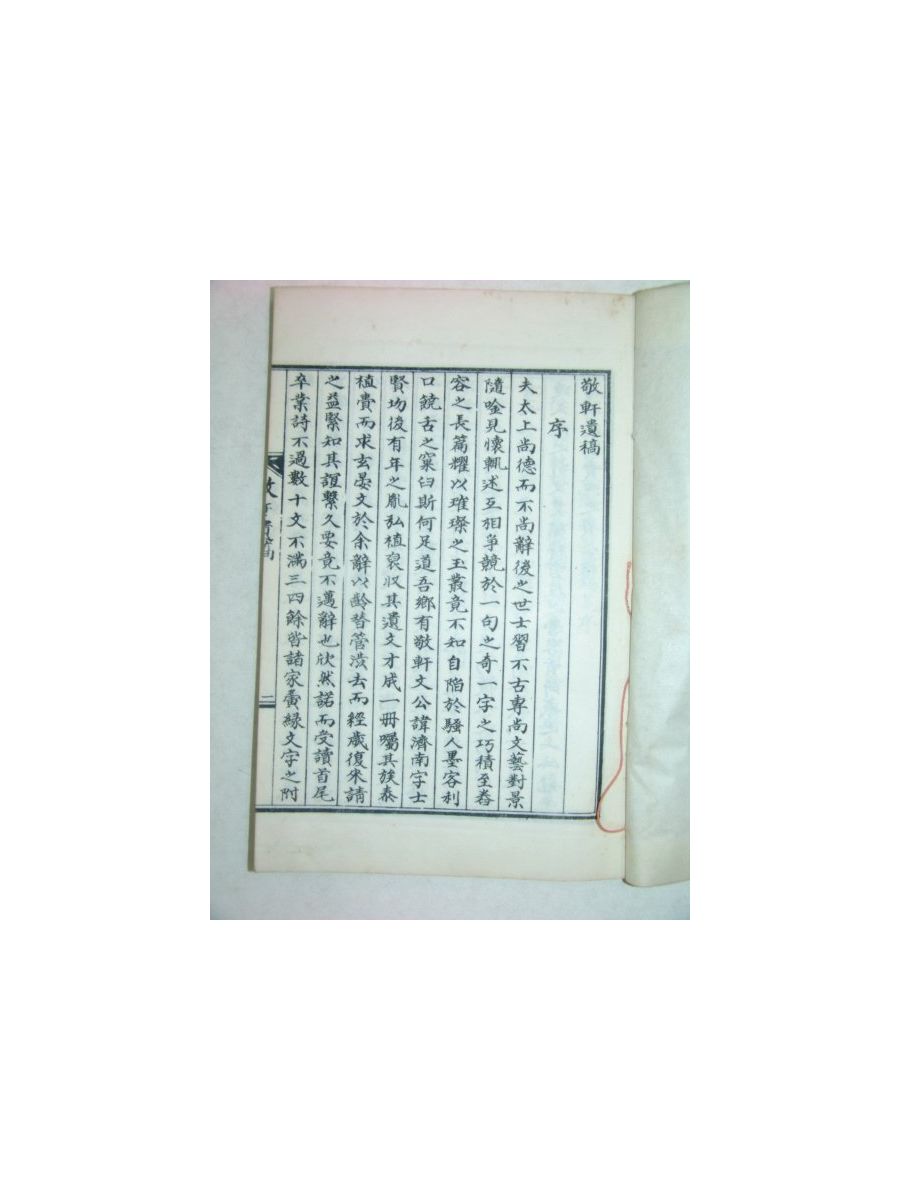 敬軒遺稿
序
夫太上尚德而不尚辭後之世士習不古專尚文藝對景
隨唫見懷輒述互相爭競於一句之奇一字之巧積至舂
容之長篇耀以璀璨之玉叢竟不知自陷於騷人墨客利
口饒舌之窠臼斯何足道吾鄉有敬軒文公諱濟南字士
賢歿後有年之胤弘植裒收其遺文才成一冊囑其族泰
植賚而求玄晏文於余辭以齡替管潰去而經歲復來請
之益緊知其誼繫久要竟不邁辭也欣然諾而受讀首尾
卒業詩不過數十文不滿三四餘皆諸家夤緣文字之附
二